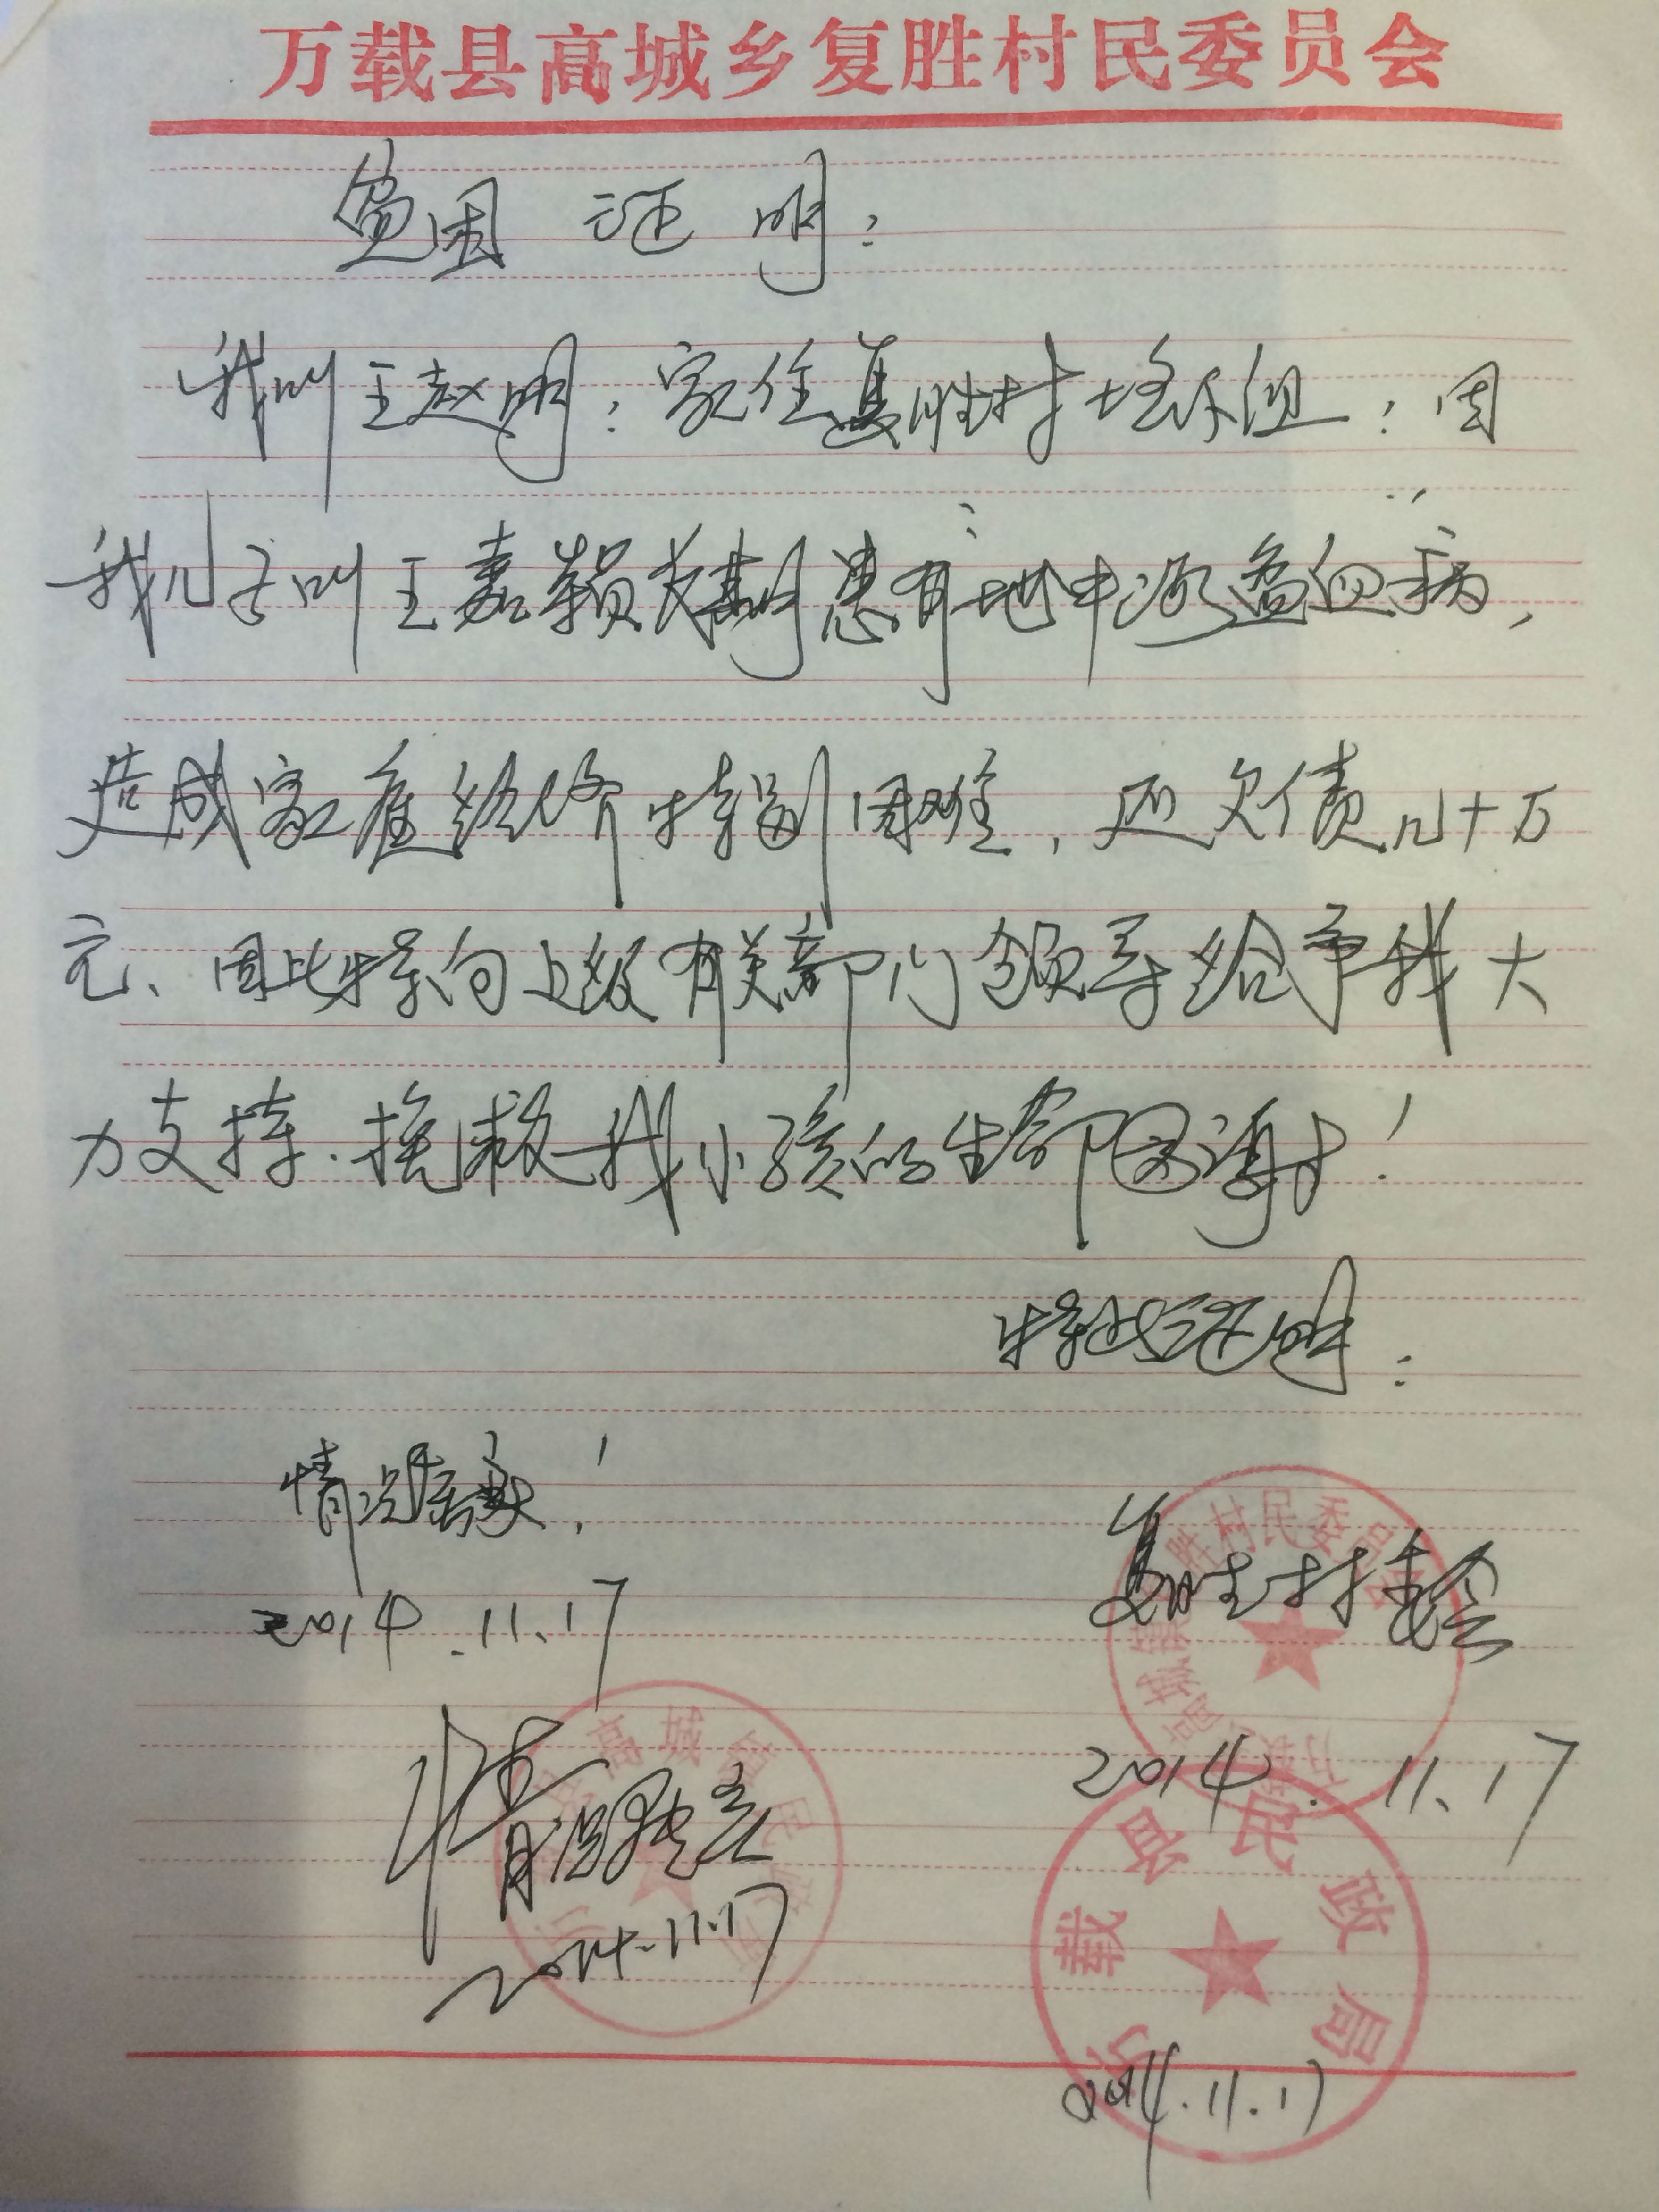 万载县高城乡复胜村民委员会
贫困证明:
我叫王赵明;家住复胜村组;因
我儿子叫王嘉颖长期患有地中海贫血病,
造成家庭经济特别困难,还欠债几十万
元、因此特向上级有关部门领导给予我大
力支持.挽救我小孩的生命
特此证明:
情况属实!
2014.11.17
复胜村委会
2014.11.17
情况属实
2014.11.17
万载县民政局
2014.11.17